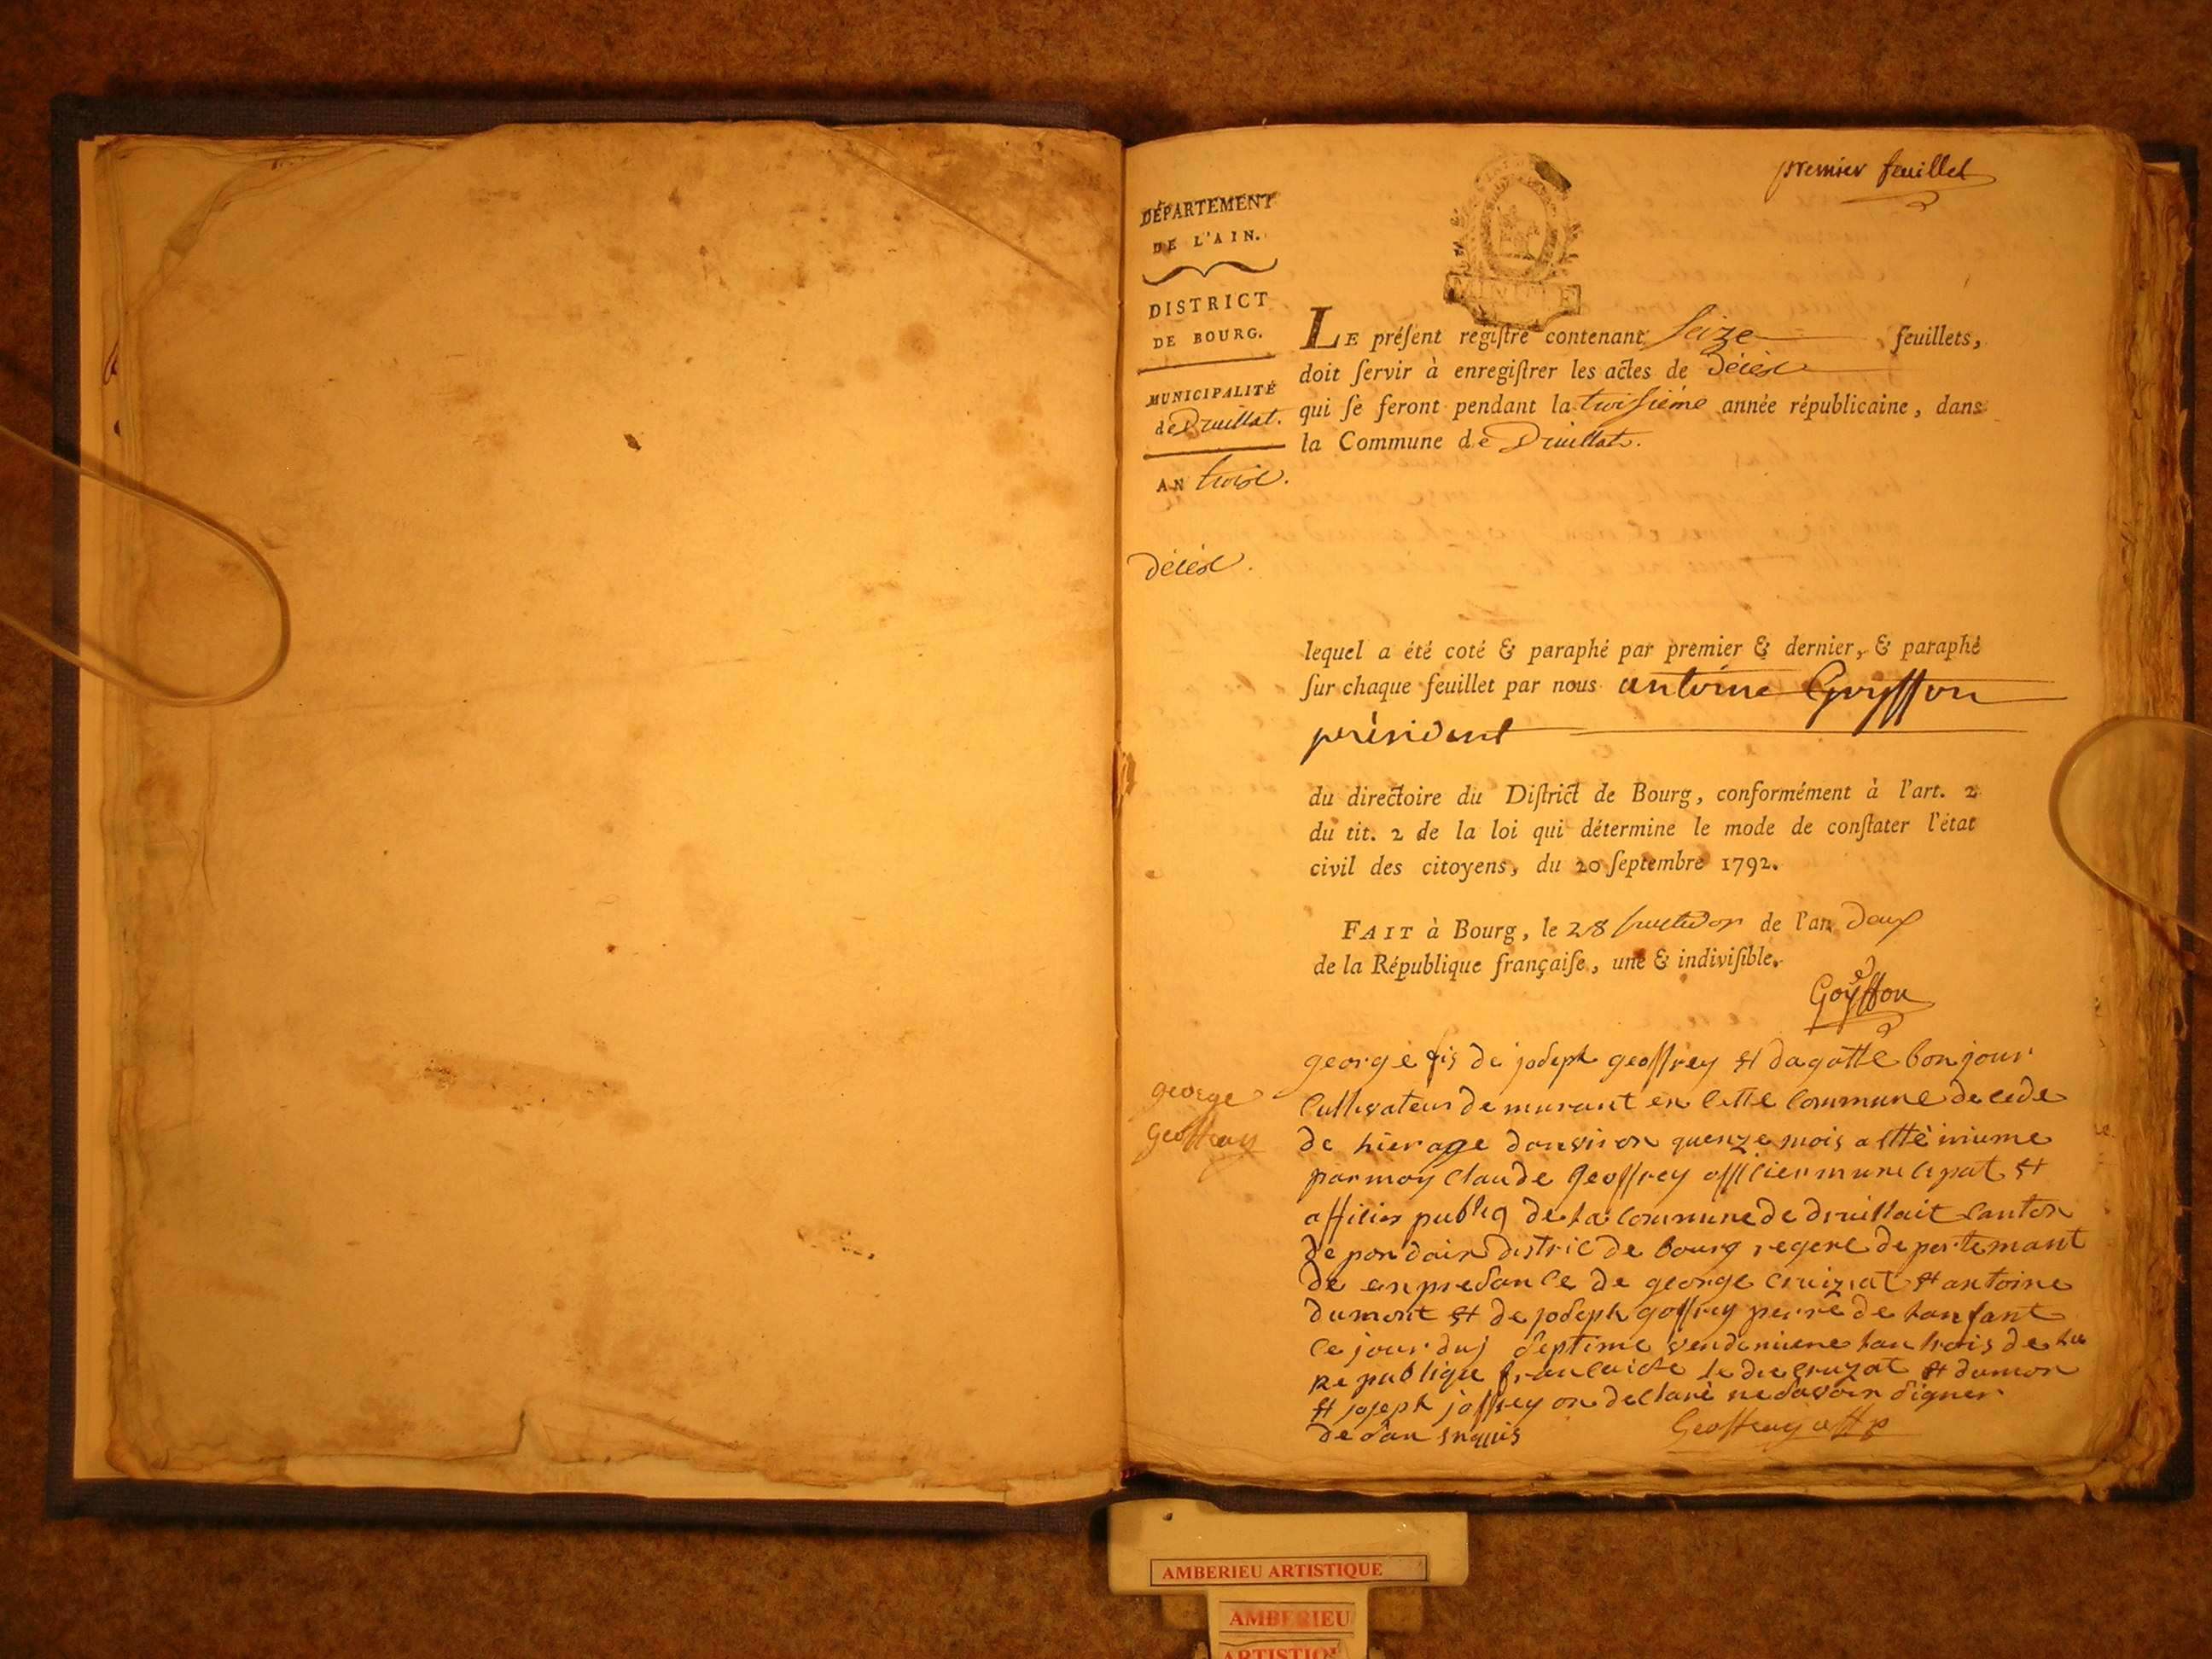 premier feuillet
DÉPARTEMENT
DE L'AIN.
DISTRICT
DE BOURG.
MUNICIPALITÉ
de Druillat.
AN trois.
décès.
MINUTE
LE préſent regiſtre contenant Seize feuillets,
doit ſervir à enregiſtrer les actes de décès
qui ſe feront pendant la troisiéme année républicaine, dans
la Commune de Druillat.
lequel a été coté & paraphé par premier & dernier, & paraphé
ſur chaque feuillet par nous antoine Goyffon
président
du directoire du Diſtrict de Bourg, conformément à l'art. 2
du tit. 2 de la loi qui détermine le mode de conſtater l'état
civil des citoyens, du 20 ſeptembre 1792.
FAIT à Bourg, le 28 fructidor de l'an deux
de la République françaiſe, une & indiviſible.
Goÿffon
george
geoffray
george fis de joseph geoffrey et dagatte bonjour
Cultivateur demurant en cette commune decede
de hier age danviron quenze mois a etté iniume
par moy Claude geoffrey officier municipat et
officier publiq de la commune de druillait canton
de pon dain distric de bourg regene departemant
de en presance de george cruiziat et antoine
dumont et de joseph goffrey perre de lanfant
ce jour duj septime vendemiere lan trois de la
Republique francaise le die cruzat et dumon
et joseph joffrey on declaré ne savoir signer
de san enquis
Geoffray off p
AMBERIEU ARTISTIQUE
AMBERIEU
ARTISTIQUE